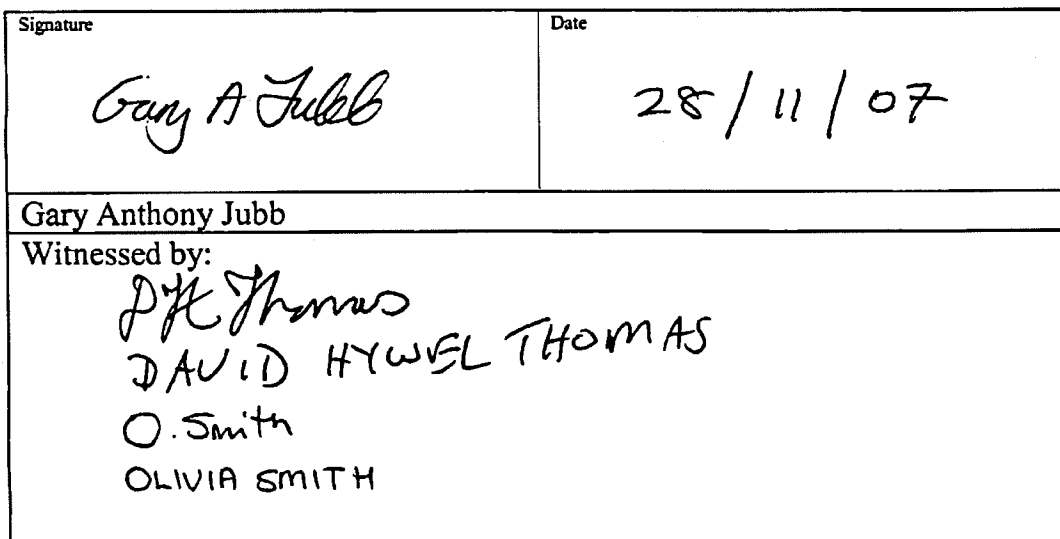 Signature
Date
Gary A Jubb
28/11/07
Gary Anthony Jubb
Witnessed by:
D H Thomas
DAVID HYWEL THOMAS
O. Smith
OLIVIA SMITH